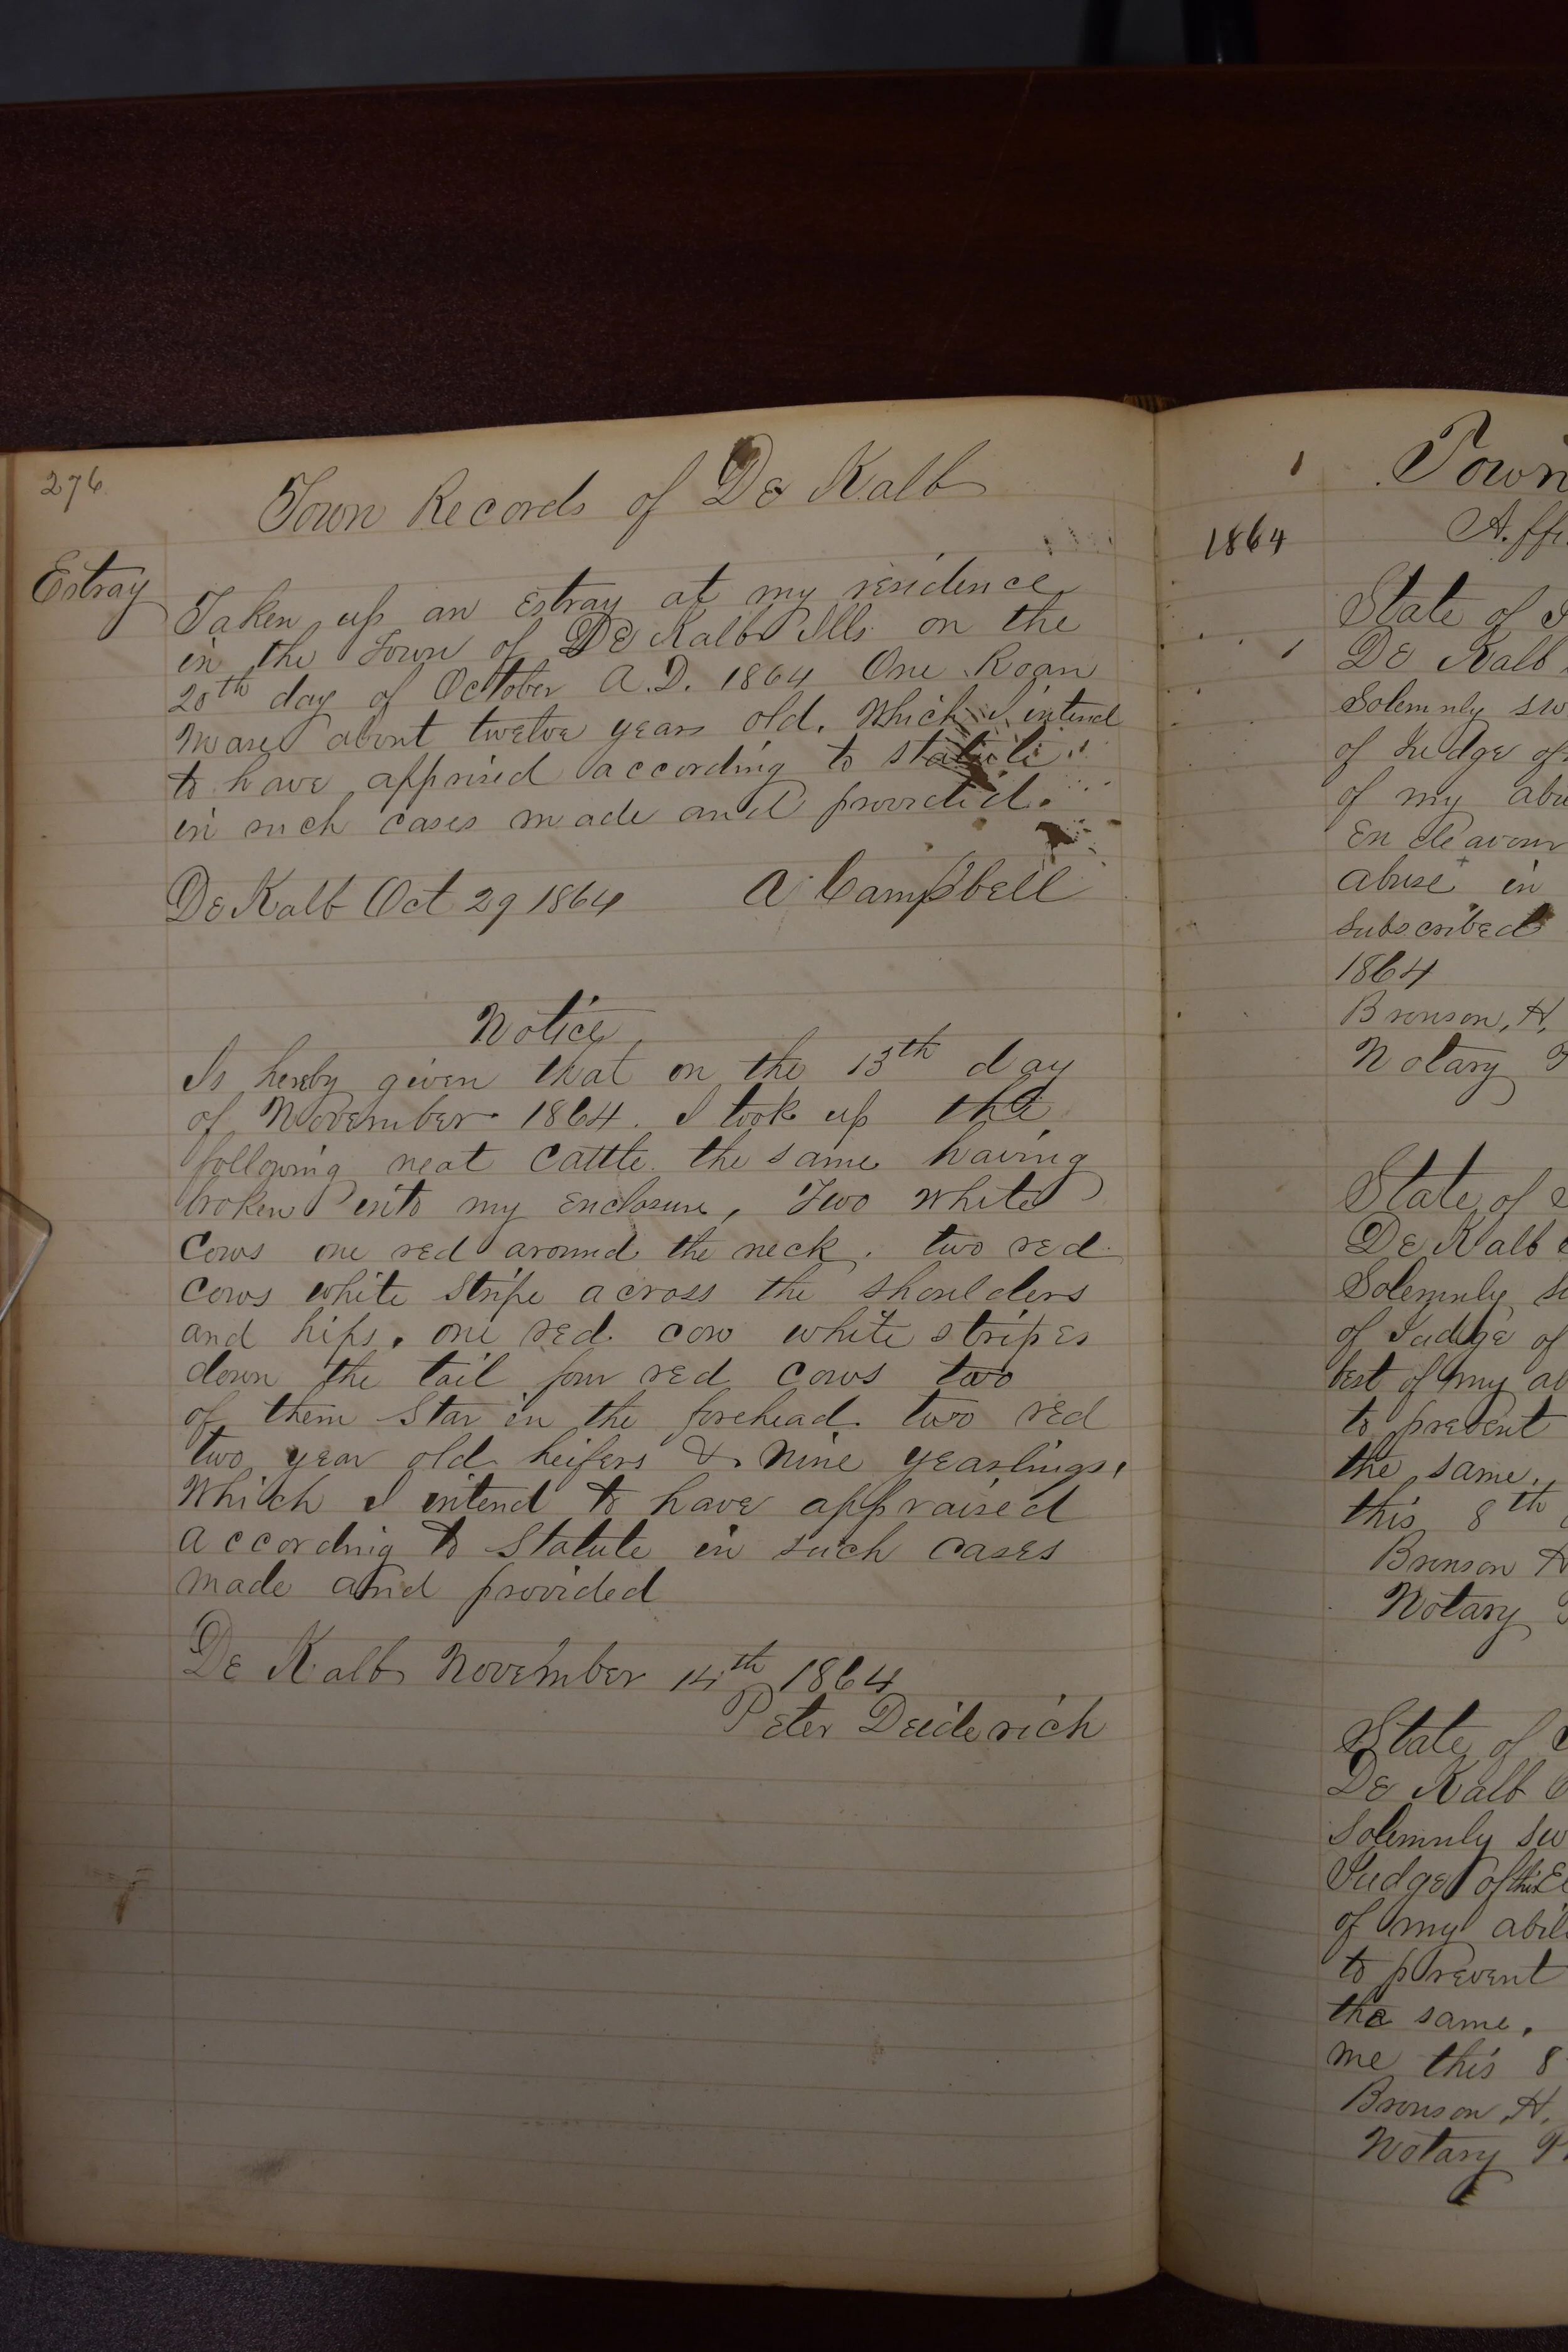 276
Town Records of De Kalb
Estray
Taken up an Estray at my residence
in the Town of De Kalb Ills on the
20th day of October A.D. 1864 One Roan
Mare about twelve years old. Which I intend
to have apprised according to statute
in such cases made and provided.
De Kalb Oct 29 1864 A Campbell
Notice
Is hereby given that on the 13th day
of November 1864. I took up the
following neat cattle the same having
broken into my Enclosure, Two White
Cows one red around the neck. two red
Cows white stripe across the shoulders
and hips. one red cow white stripes
down the tail four red cows two
of them Star in the forehead two red
two year old heifers & nine yearlings,
Which I intend to have appraised
according to Statute in such cases
made and provided
De Kalb November 14th 1864
Peter Deiderich
Town
1864
State of
De Kalb
Solemnly
of Judge of
of my
Endeavour
abuse in
Subscribed
1864
Bronson, H,
Notary
State of
De Kalb
Solemnly
of Judge of
best of my
to prevent
the same.
this 8th
Bronson H
Notary
State of
De Kalb
Solemnly
Judge of this
of my
to prevent
the same.
me this 8
Bronson, H,
Notary